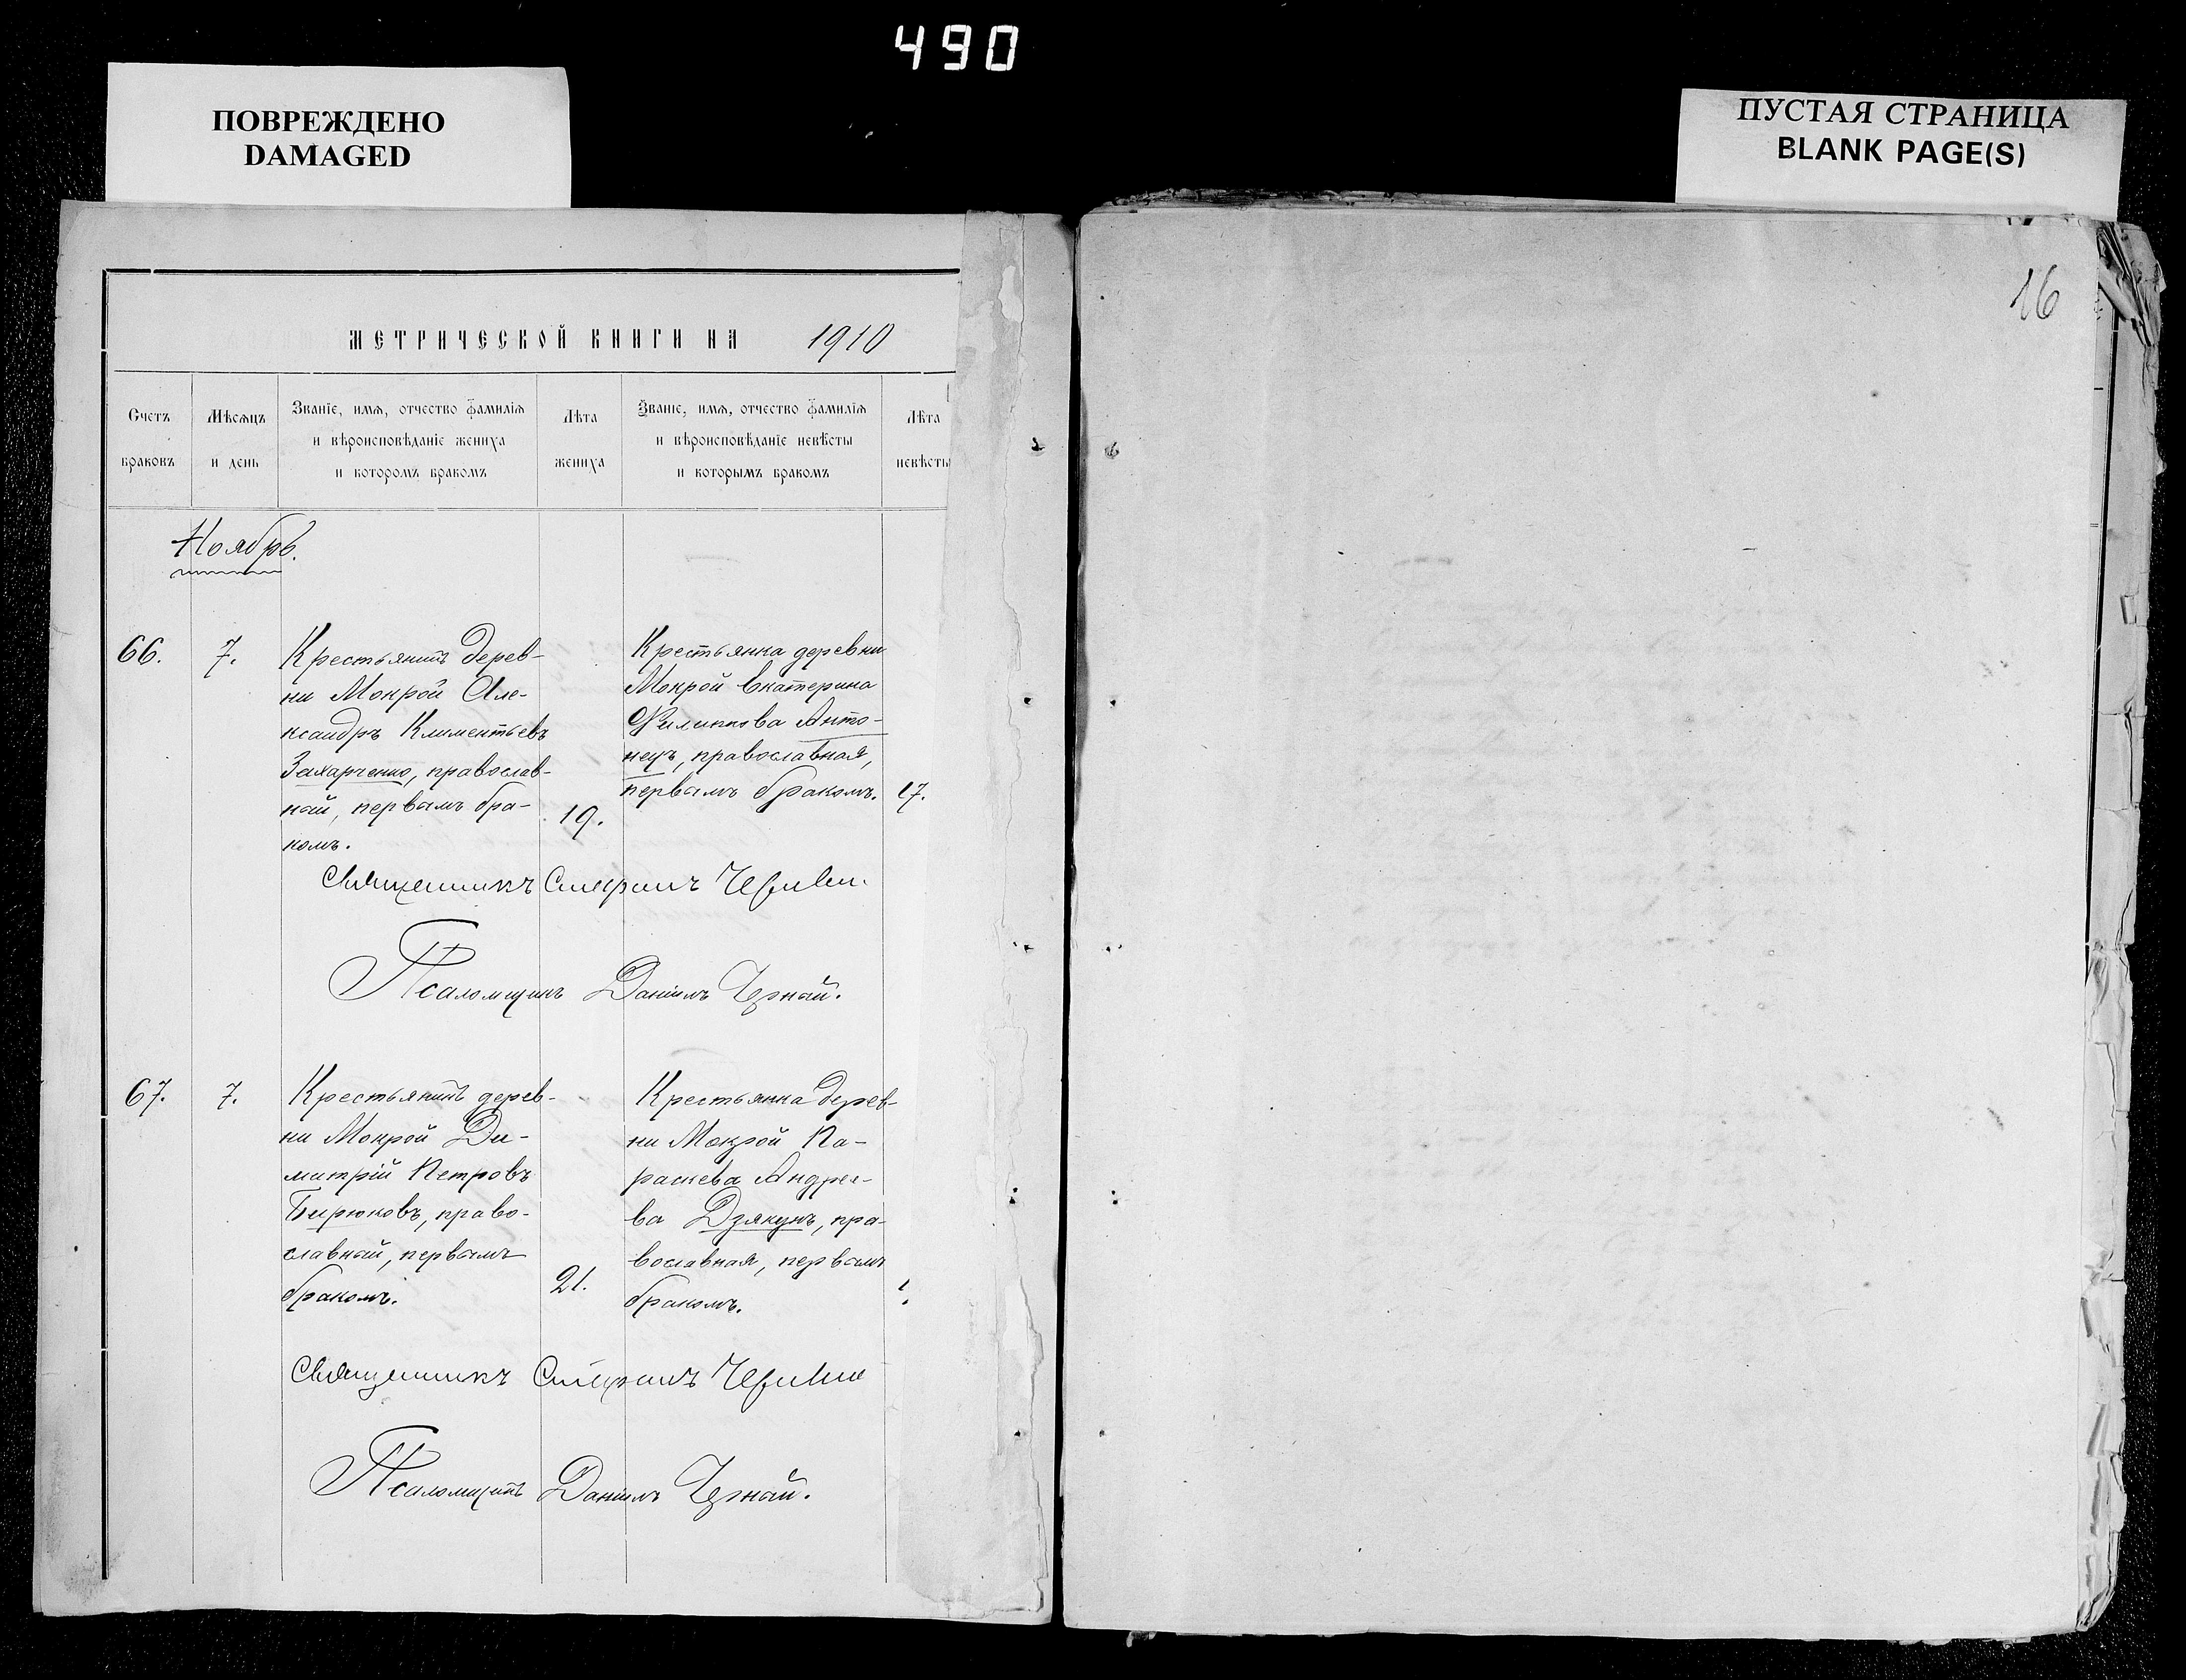 490
ПОВРЕЖДЕНО
DAMAGED
ПУСТАЯ СТРАНИЦА
BLANK PAGE(S)
16
МЕТРИЧЕСКОЙ КНИГИ НА 1910
Счетъ
браковъ
Мѣсяцъ
и день
Званіе, имя, отчество фамилія
и вѣроисповѣданіе жениха
и которомъ бракомъ
Лѣта
жениха
Званіе, имя, отчество фамилія
и вѣроисповѣданіе невѣсты
и которымъ бракомъ
Лѣта
невѣсты
Ноябрь.
66.
7.
Крестьянинъ дерев-
ни Мокрой Але-
ксандръ Климентьевъ
Захарченко, православ-
ный, первымъ бра-
комъ.
19.
Крестьянка деревни
Мокрой Екатерина
Филиппова Анто-
нецъ, православная,
первымъ бракомъ.
17.
Священникъ
Псаломщикъ Даніилъ Черный.
67.
7.
Крестьянинъ дерев-
ни Мокрой Ди-
митрій Петровъ
Бирюковъ, право-
славный, первымъ
бракомъ.
21.
Крестьянка дерев-
ни Мокрой Па-
раскева Андрее-
ва Дзякунъ, пра-
вославная, первымъ
бракомъ.
Священникъ
Псаломщикъ Даніилъ Черный.